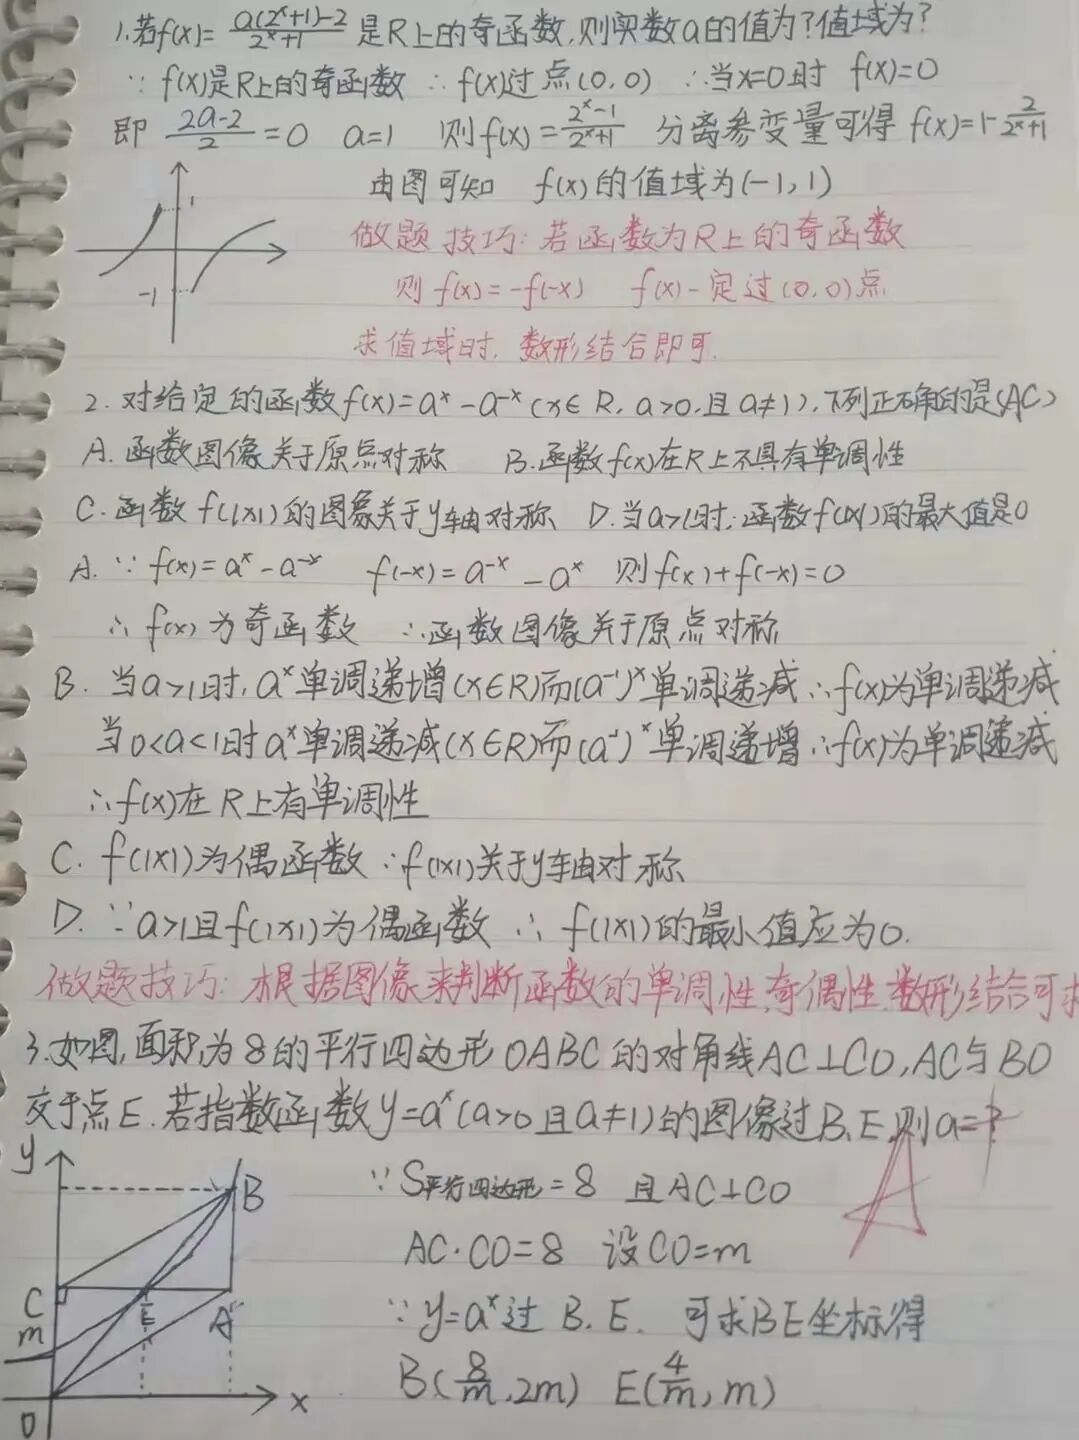 1.若f(x)=\frac{a(2^x+1)-2}{2^x+1}是R上的奇函数,则实数a的值为?值域为?
∵f(x)是R上的奇函数 ∴f(x)过点(0,0) ∴当x=0时 f(x)=0
即 \frac{2a-2}{2}=0 a=1 则f(x)=\frac{2^x-1}{2^x+1} 分离参变量可得 f(x)=1-\frac{2}{2^x+1}
由图可知 f(x)的值域为(-1,1)
1
-1
做题技巧:若函数为R上的奇函数
则f(x)=-f(-x) f(x)一定过(0,0)点
求值域时,数形结合即可.
2.对给定的函数f(x)=a^x-a^{-x}(x∈R,a>0,且a≠1),下列正确的是(AC)
A.函数图像关于原点对称 B.函数f(x)在R上不具有单调性
C.函数f(|x|)的图象关于y轴对称 D.当a>1时,函数f(|x|)的最大值是0
A.∵f(x)=a^x-a^{-x} f(-x)=a^{-x}-a^x 则f(x)+f(-x)=0
∴f(x)为奇函数 ∴函数图像关于原点对称
B.当a>1时,a^x单调递增(x∈R)而(a^{-1})^x单调递减∴f(x)为单调递减
当0<a<1时a^x单调递减(x∈R)而(a^{-1})^x单调递增∴f(x)为单调递减
∴f(x)在R上有单调性
C.f(|x|)为偶函数∴f(|x|)关于y轴对称
D.∵a>1且f(|x|)为偶函数∴f(|x|)的最小值应为0.
做题技巧:根据图像来判断函数的单调性,奇偶性,数形结合可
3.如图,面积为8的平行四边形OABC的对角线AC⊥CO,AC与BO
交于点E.若指数函数y=a^x(a>0且a≠1)的图像过B、E,则a=?
∵S平行四边形=8 且AC⊥CO
AC·CO=8 设CO=m
∵y=a^x过B、E. 可求BE坐标得
B(\frac{8}{m},2m) E(\frac{4}{m},m)
y
B
C
m
E
A
0
x
A